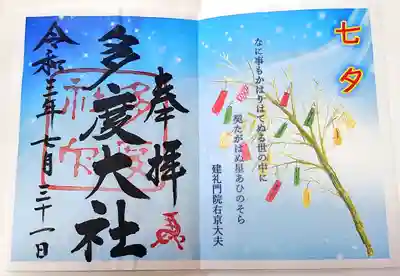 七夕
なに事もかはりはてぬる世の中に
契たがはぬ星あひのそら
建礼門院右京大夫
奉拝
多度大社
令和三年七月三十一日